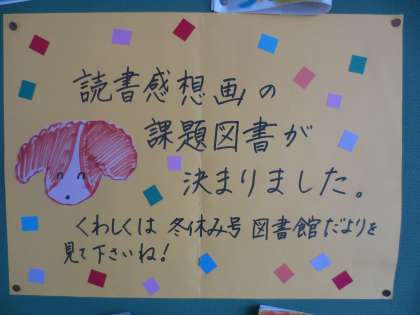 読書感想画の
課題図書が
決まりました。
くわしくは 冬休み号 図書館だよりを
見て下さいね!